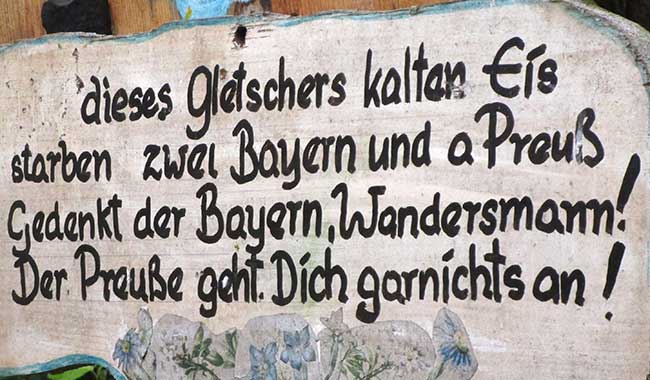 dieses Gletschers kalten Eis
starben zwei Bayern und a Preuß
Gedenkt der Bayern, Wandersmann!
Der Preuße geht Dich garnichts an!